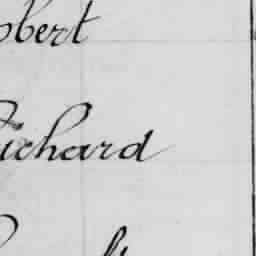 obert
Richard